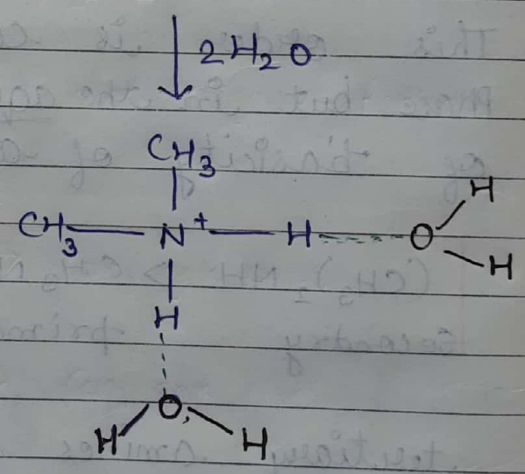 2H₂O
CH₃
CH₃—N⁺—H-----O
H
H
H
O
H H